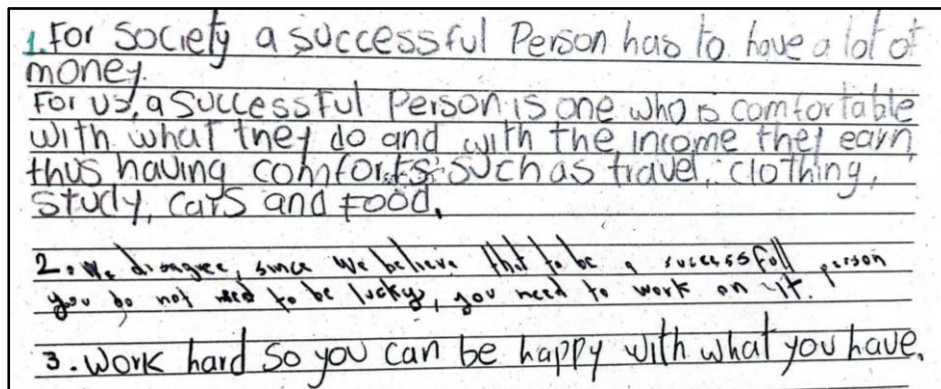 1. For society a successful Person has to have a lot of
money.
For us, a successful Person is one who is comfortable
with what they do and with the income they earn,
thus having comforts such as travel, clothing,
study, cars and food.
2. We disagree, since we believe that to be a successfull person
you do not need to be lucky, you need to work on it.
3. Work hard so you can be happy with what you have.